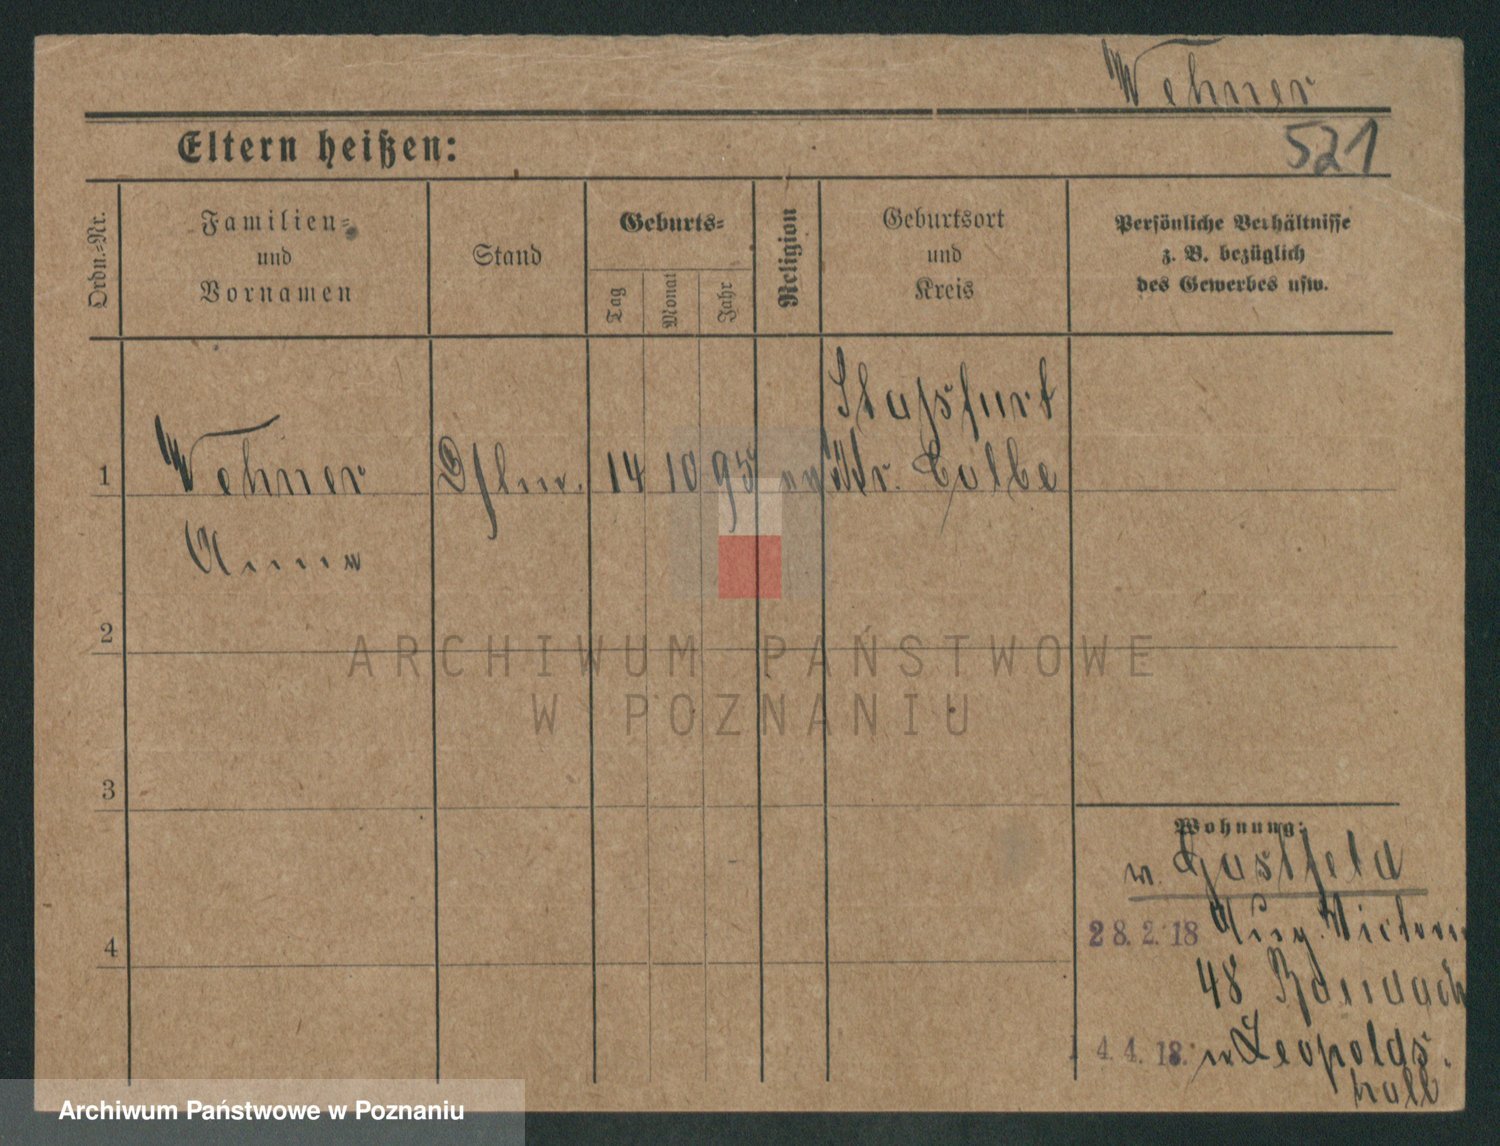 Wehner
Eltern heißen:
521
Ordn.-Nr.
Familien-
und
Vornamen
Stand
Geburts-
Tag
Monat
Jahr
Religion
Geburtsort
und
Kreis
Persönliche Verhältnisse
z. B. bezüglich
des Gewerbes usw.
Stassfurt
1 Wehner 14 10 95 Kr. Calbe
Anna
2
3
4
ARCHIWUM PAŃSTWOWE
W POZNANIU
Wohnung:
28.2.18 Aug. Victoria
48
4.4.18. Leopolds.
hall
Archiwum Państwowe w Poznaniu